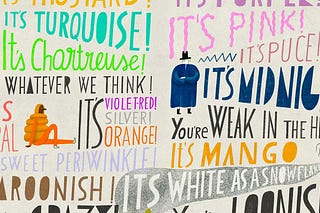 IT'S TURQUOISE!
It's Chartreuse!
WHATEVER WE THINK!
IT'S
VIOLETRED!
SILVER!
ORANGE!
SWEET PERIWINKLE!
AROONISH!
CRAZY!
IT'S PURPLE!
IT'S PINK!
IT'S PUCE!
IT'S MIDNIG
You're WEAK IN THE HE
IT'S MANGO
ITS WHITE AS A SNOWFLA
LOONIS